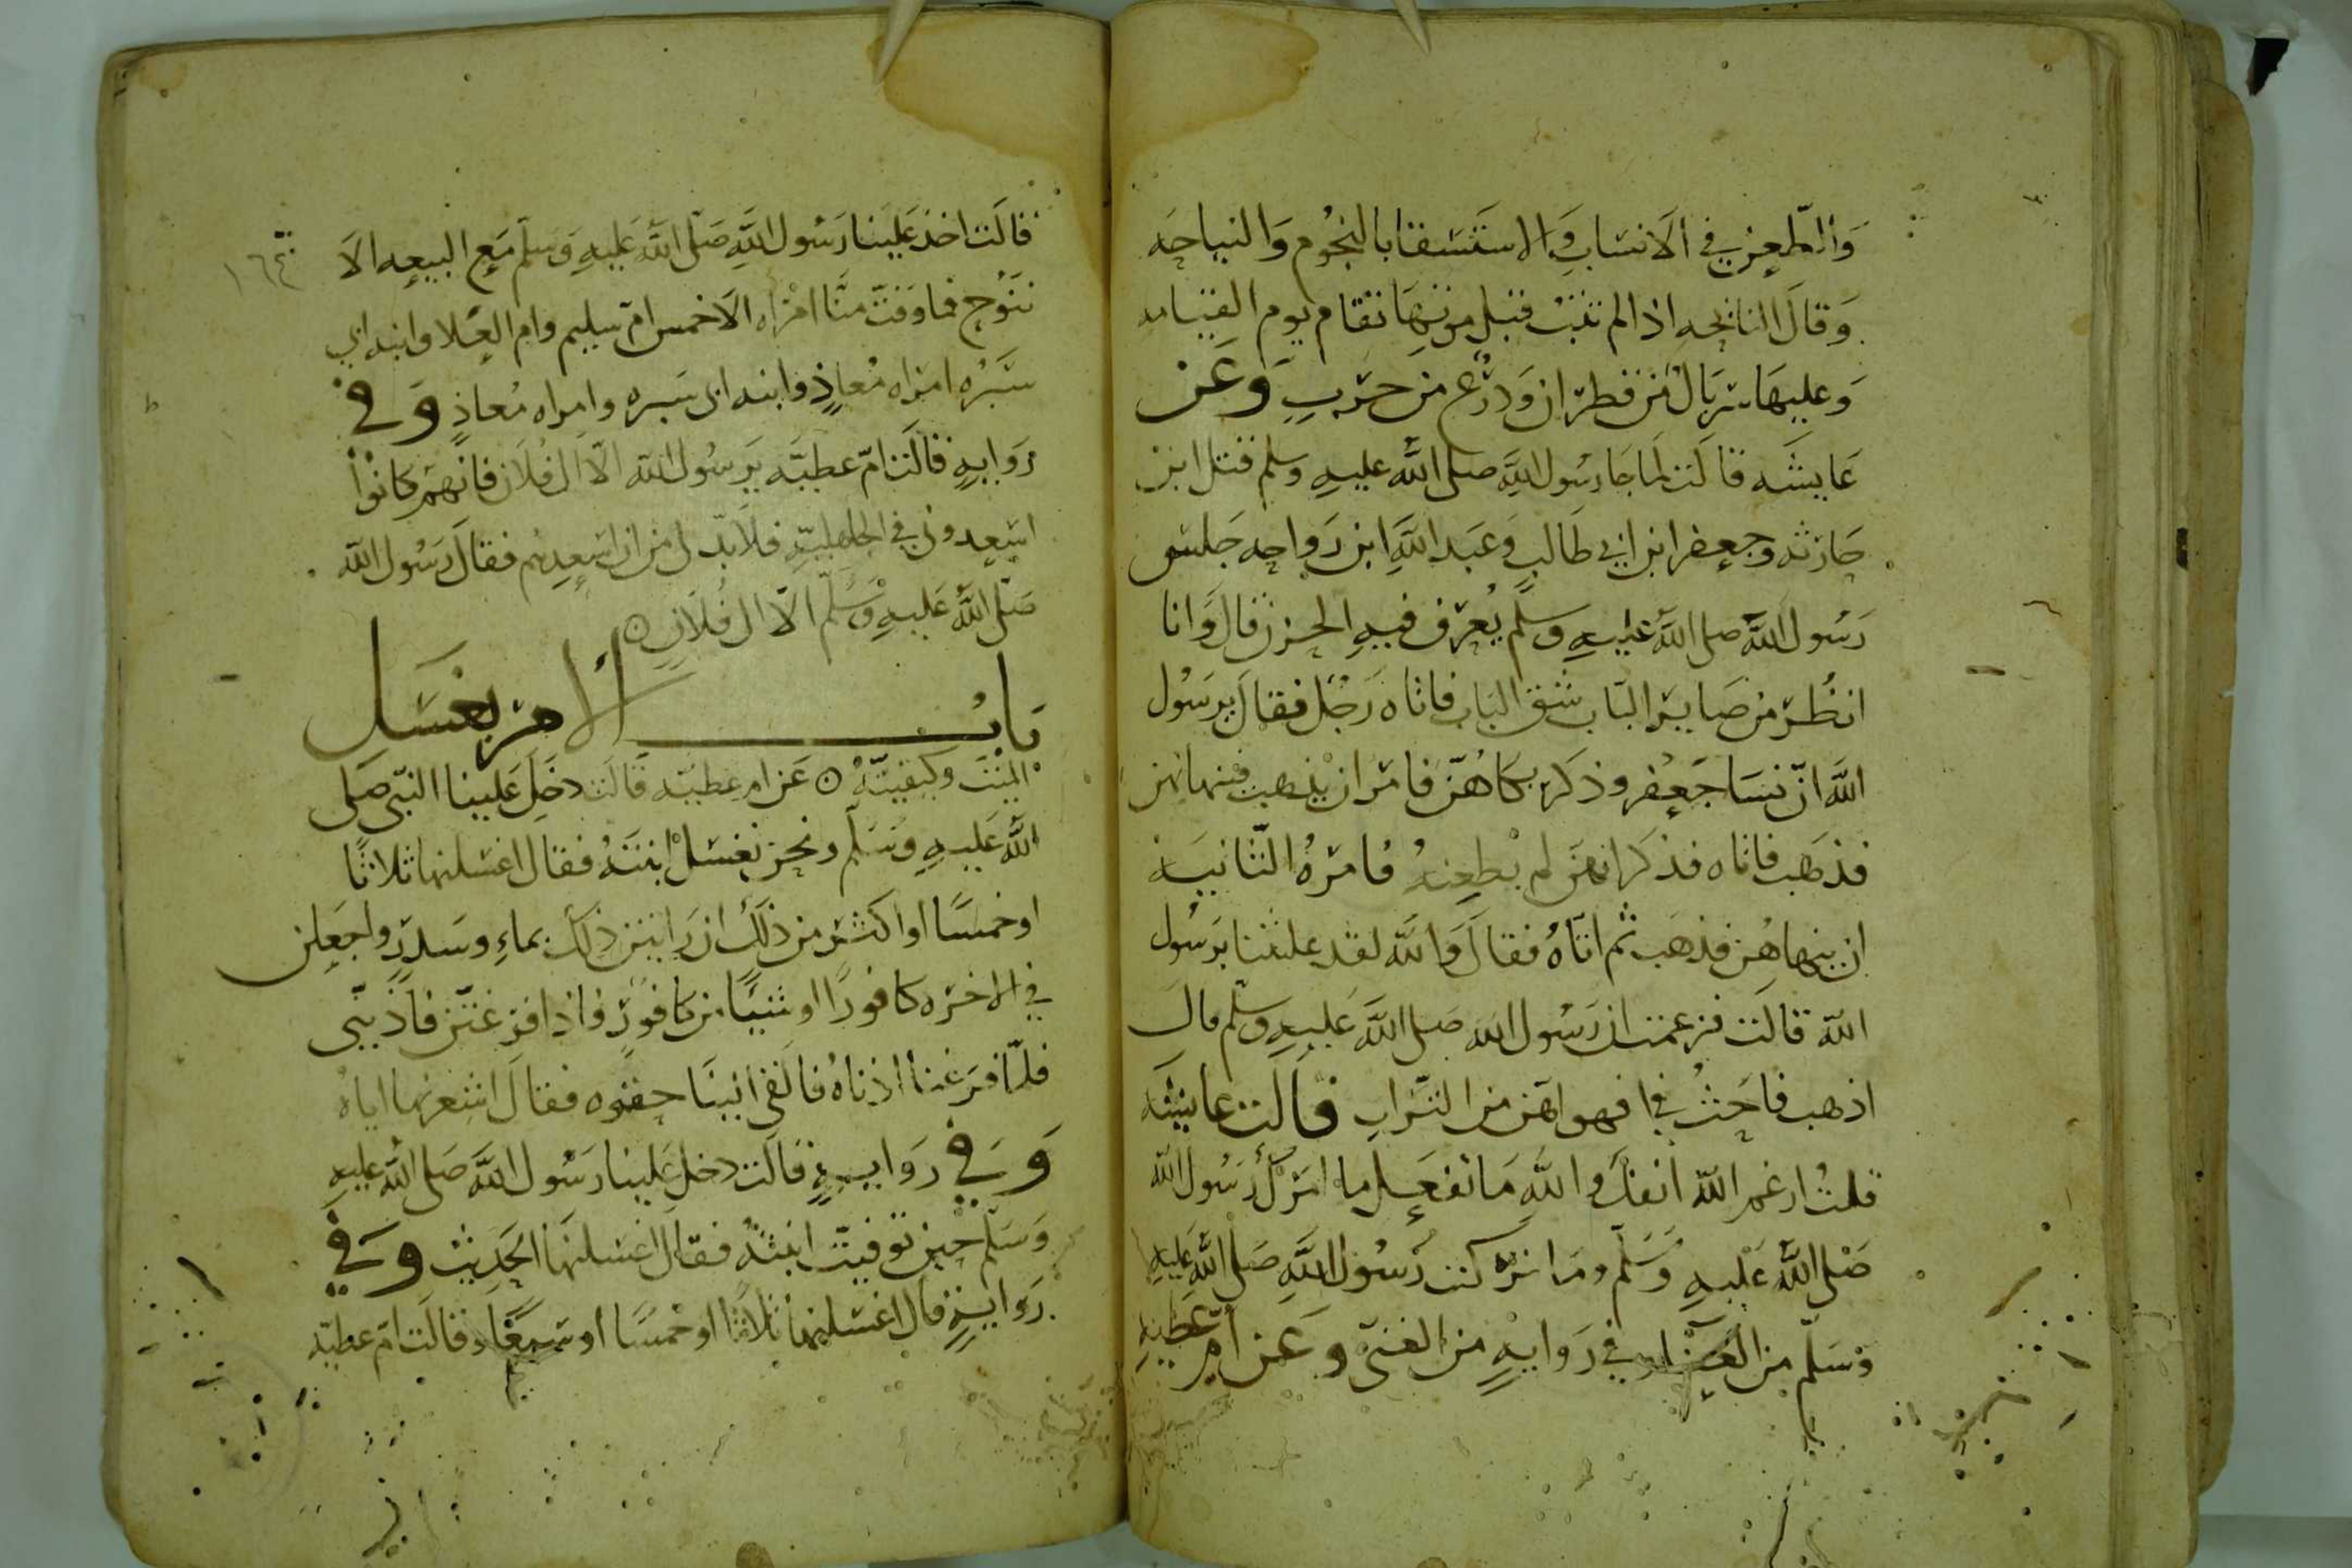 والطعن في الانساب والاستسقا بالنجوم والنياحه
وقال النائحه اذا لم تتب قبل موتها تقام يوم القيامه
وعليها سربال من قطران ودرع من جرب وعن
عايشه قالت لما جا رسول الله صلى الله عليه وسلم قتل ابن
حارثه وجعفر ابن ابي طالب وعبد الله ابن رواحه جلس
رسول الله صلى الله عليه وسلم يعرف فيه الحزن قال وانا
انظر من صاير الباب شق الباب فاتاه رجل فقال يرسول
الله ان نسا جعفر وذكر بكاهن فامر ان يذهب فينهاهن
فذهب فاتاه فذكر انهن لم يطعنه فامره الثانيه
ان ينهاهن فذهب ثم اتاه فقال والله لقد غلبننا يرسول
الله قالت فزعمت ان رسول الله صلى الله عليه وسلم قال
اذهب فاحث في افواههن من التراب قالت عايشه
قلت ارغم الله انفك والله ما تفعل ما امرك رسول الله
صلى الله عليه وسلم وما تركت رسول الله صلى الله عليه
وسلم من العنا وفي روايه من العي وعن ام عطيه
١٦٤
قالت اخذ علينا رسول الله صلى الله عليه وسلم مع البيعه الا
ننوح فما وفت منا امراه الا خمس ام سليم وام العلا وابنه ابي
سبره امراه معاذ وابنه ابي سبره وامراه معاذ وفي
روايه قالت ام عطيه يرسول الله الا ال فلان فانهم كانوا
اسعدوني في الجاهليه فلابد لي من ان اسعدهم فقال رسول الله
صلى الله عليه وسلم الا ال فلان ٥
باب الامر بغسل
الميت وكيفيته ٥ عن ام عطيه قالت دخل علينا النبي صلى
الله عليه وسلم ونحن نغسل ابنته فقال اغسلنها ثلاثا
او خمسا او اكثر من ذلك ان رايتن ذلك بماء وسدر واجعلن
في الاخره كافورا او شيئا من كافور فاذا فرغتن فاذنني
فلما فرغنا اذناه فالقى الينا حقوه فقال اشعرنها اياه
وفي روايه قالت دخل علينا رسول الله صلى الله عليه
وسلم حين توفيت ابنته فقال اغسلنها الحديث وفي
روايه قال اغسلنها ثلاثا او خمسا او سبعا وقالت ام عطيه